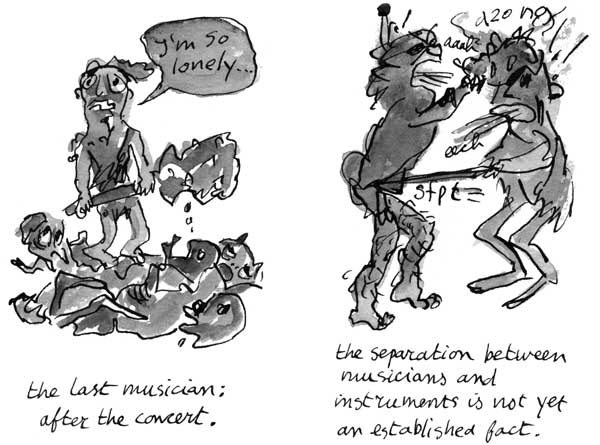 I'm so
lonely...
the last musician:
after the concert.
aaah
dzong
eech
stpt=
the separation between
musicians and
instruments is not yet
an established fact.